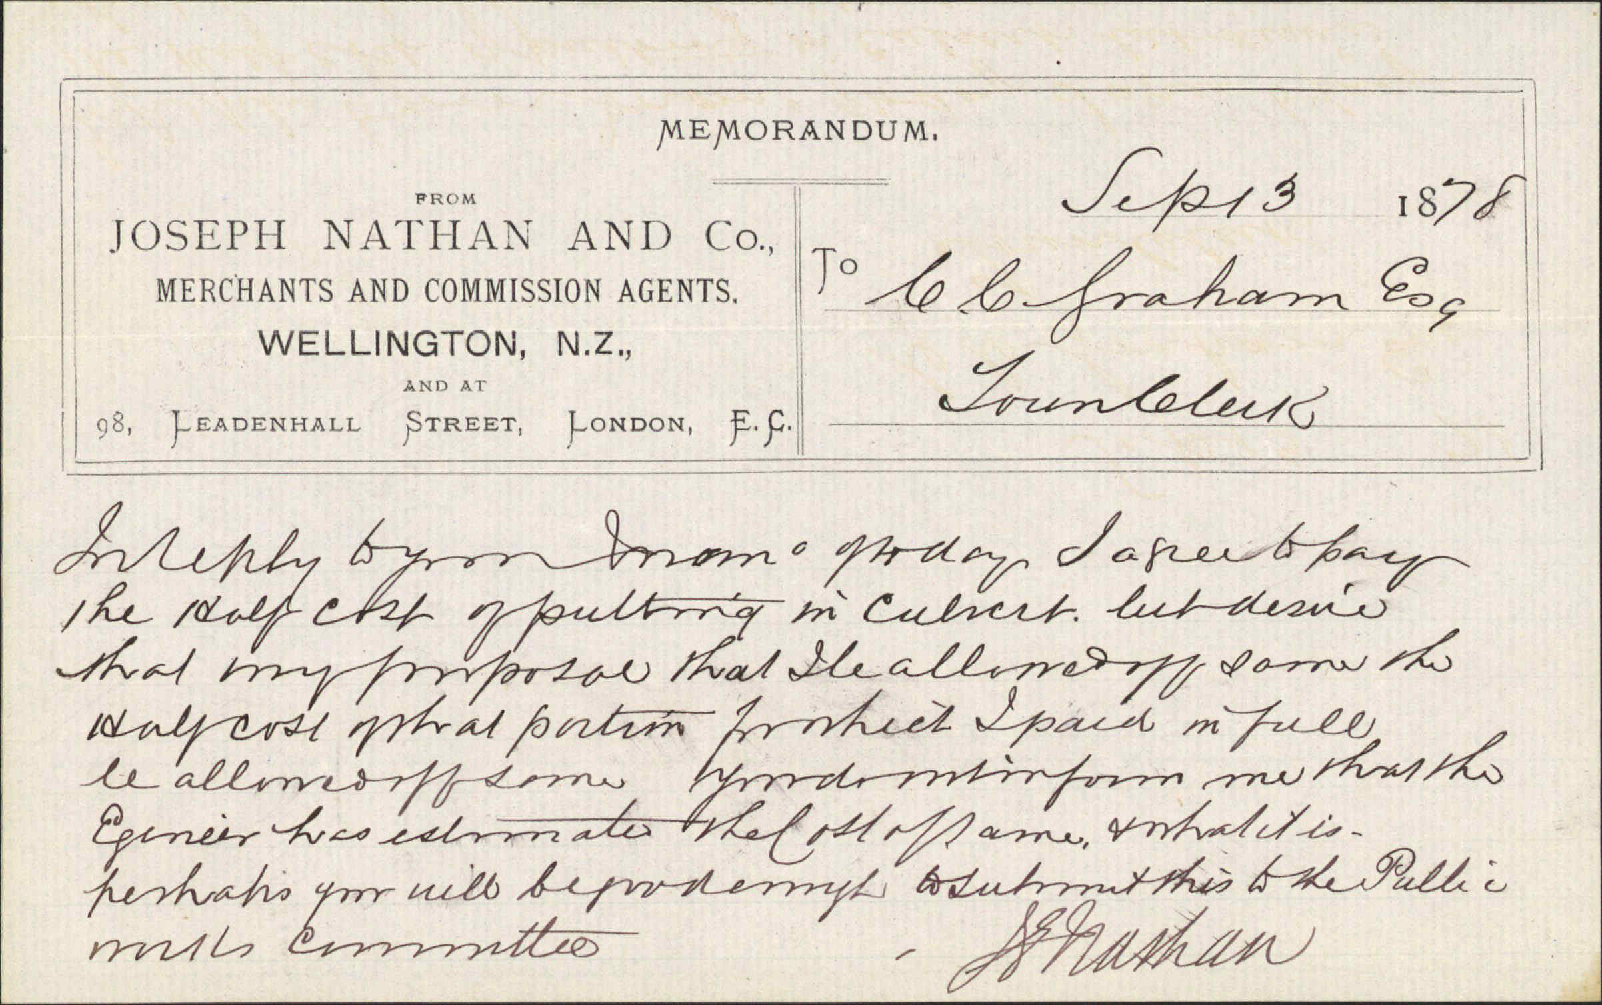 MEMORANDUM.
FROM
JOSEPH NATHAN AND Co.,
MERCHANTS AND COMMISSION AGENTS.
WELLINGTON, N.Z.,
AND AT
98, LEADENHALL STREET, LONDON, E.C.
Sep 13 1878
To C C Graham Esq
Town Clerk
In reply to your memo of today I agree to pay
the Half cost of putting in culvert. but desire
that my proposal that I be allowed off same the
Half cost of that portion for which I paid in full
be allowed off same you do not inform me that the
Egineer has estimated the Cost of same, & what it is -
perhaps you will be good enough to submit this to the Public
works Committee
J E Nathan